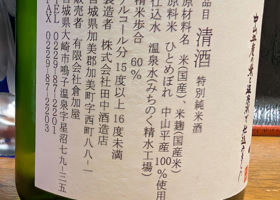 品目 清酒 特別純米酒
原材料名 米(国産)、米麹(国産米)
原料米 ひとめぼれ 中山平産100%使用
仕込水 温泉水(みちのく精水工場)
精米歩合 60%
アルコール分 15度以上16度未満
製造者 株式会社田中酒造店
宮城県加美郡加美町字西町八八ー一
販売者 有限会社倉加屋
宮城県大崎市鳴子温泉字星沼七九ー三五
TEL 0229-87-2201
FAX 0229-87-2203